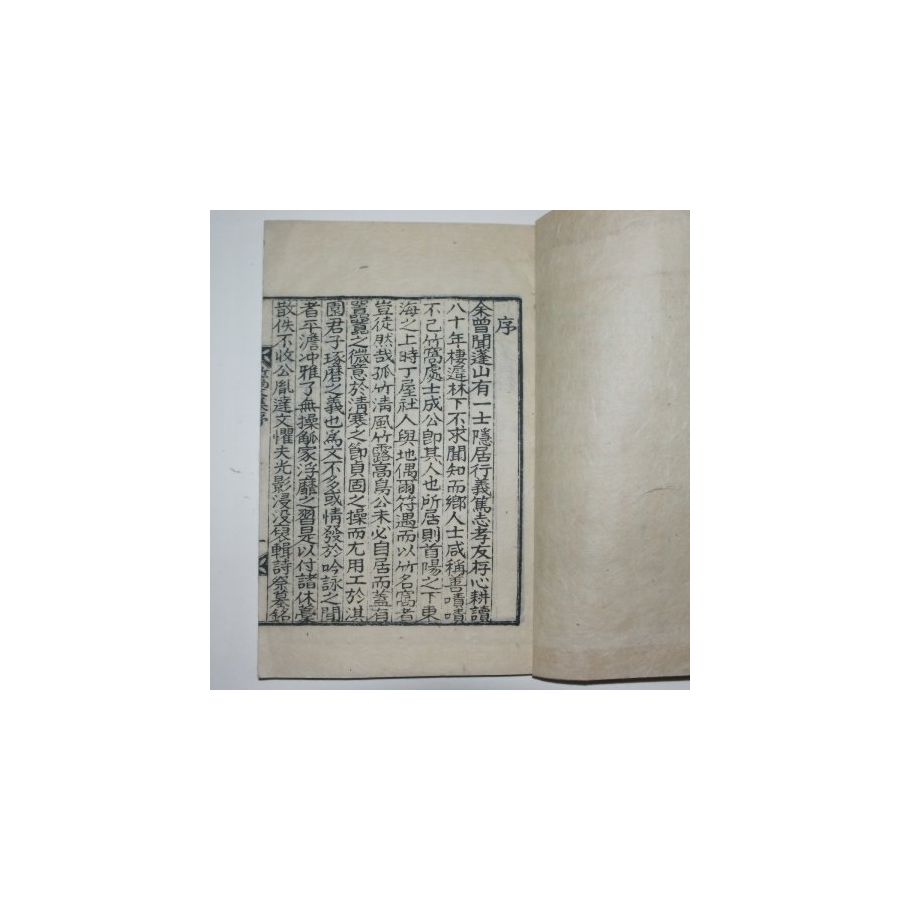 序
余曾聞蓬山有一士隱居行義篤志孝友存心耕讀
八十年棲遲林下不求聞知而鄉人士咸稱善嘖嘖
不已竹窩處士成公卽其人也所居則首陽之下東
海之上時丁屋社人與地偶爾符遇而以竹名窩者
豈徒然哉孤竹淸風竹露高鳥公未必自居而蓋有
囂囂之微意於淸寒之節貞固之操而尤用工於淇
園君子琢磨之義也爲文不多或情發於吟詠之間
者平澹冲雅了無操觚家浮靡之習是以付諸休
散佚不收公胤達文懼夫光影浸沒裒輯詩祭墓銘